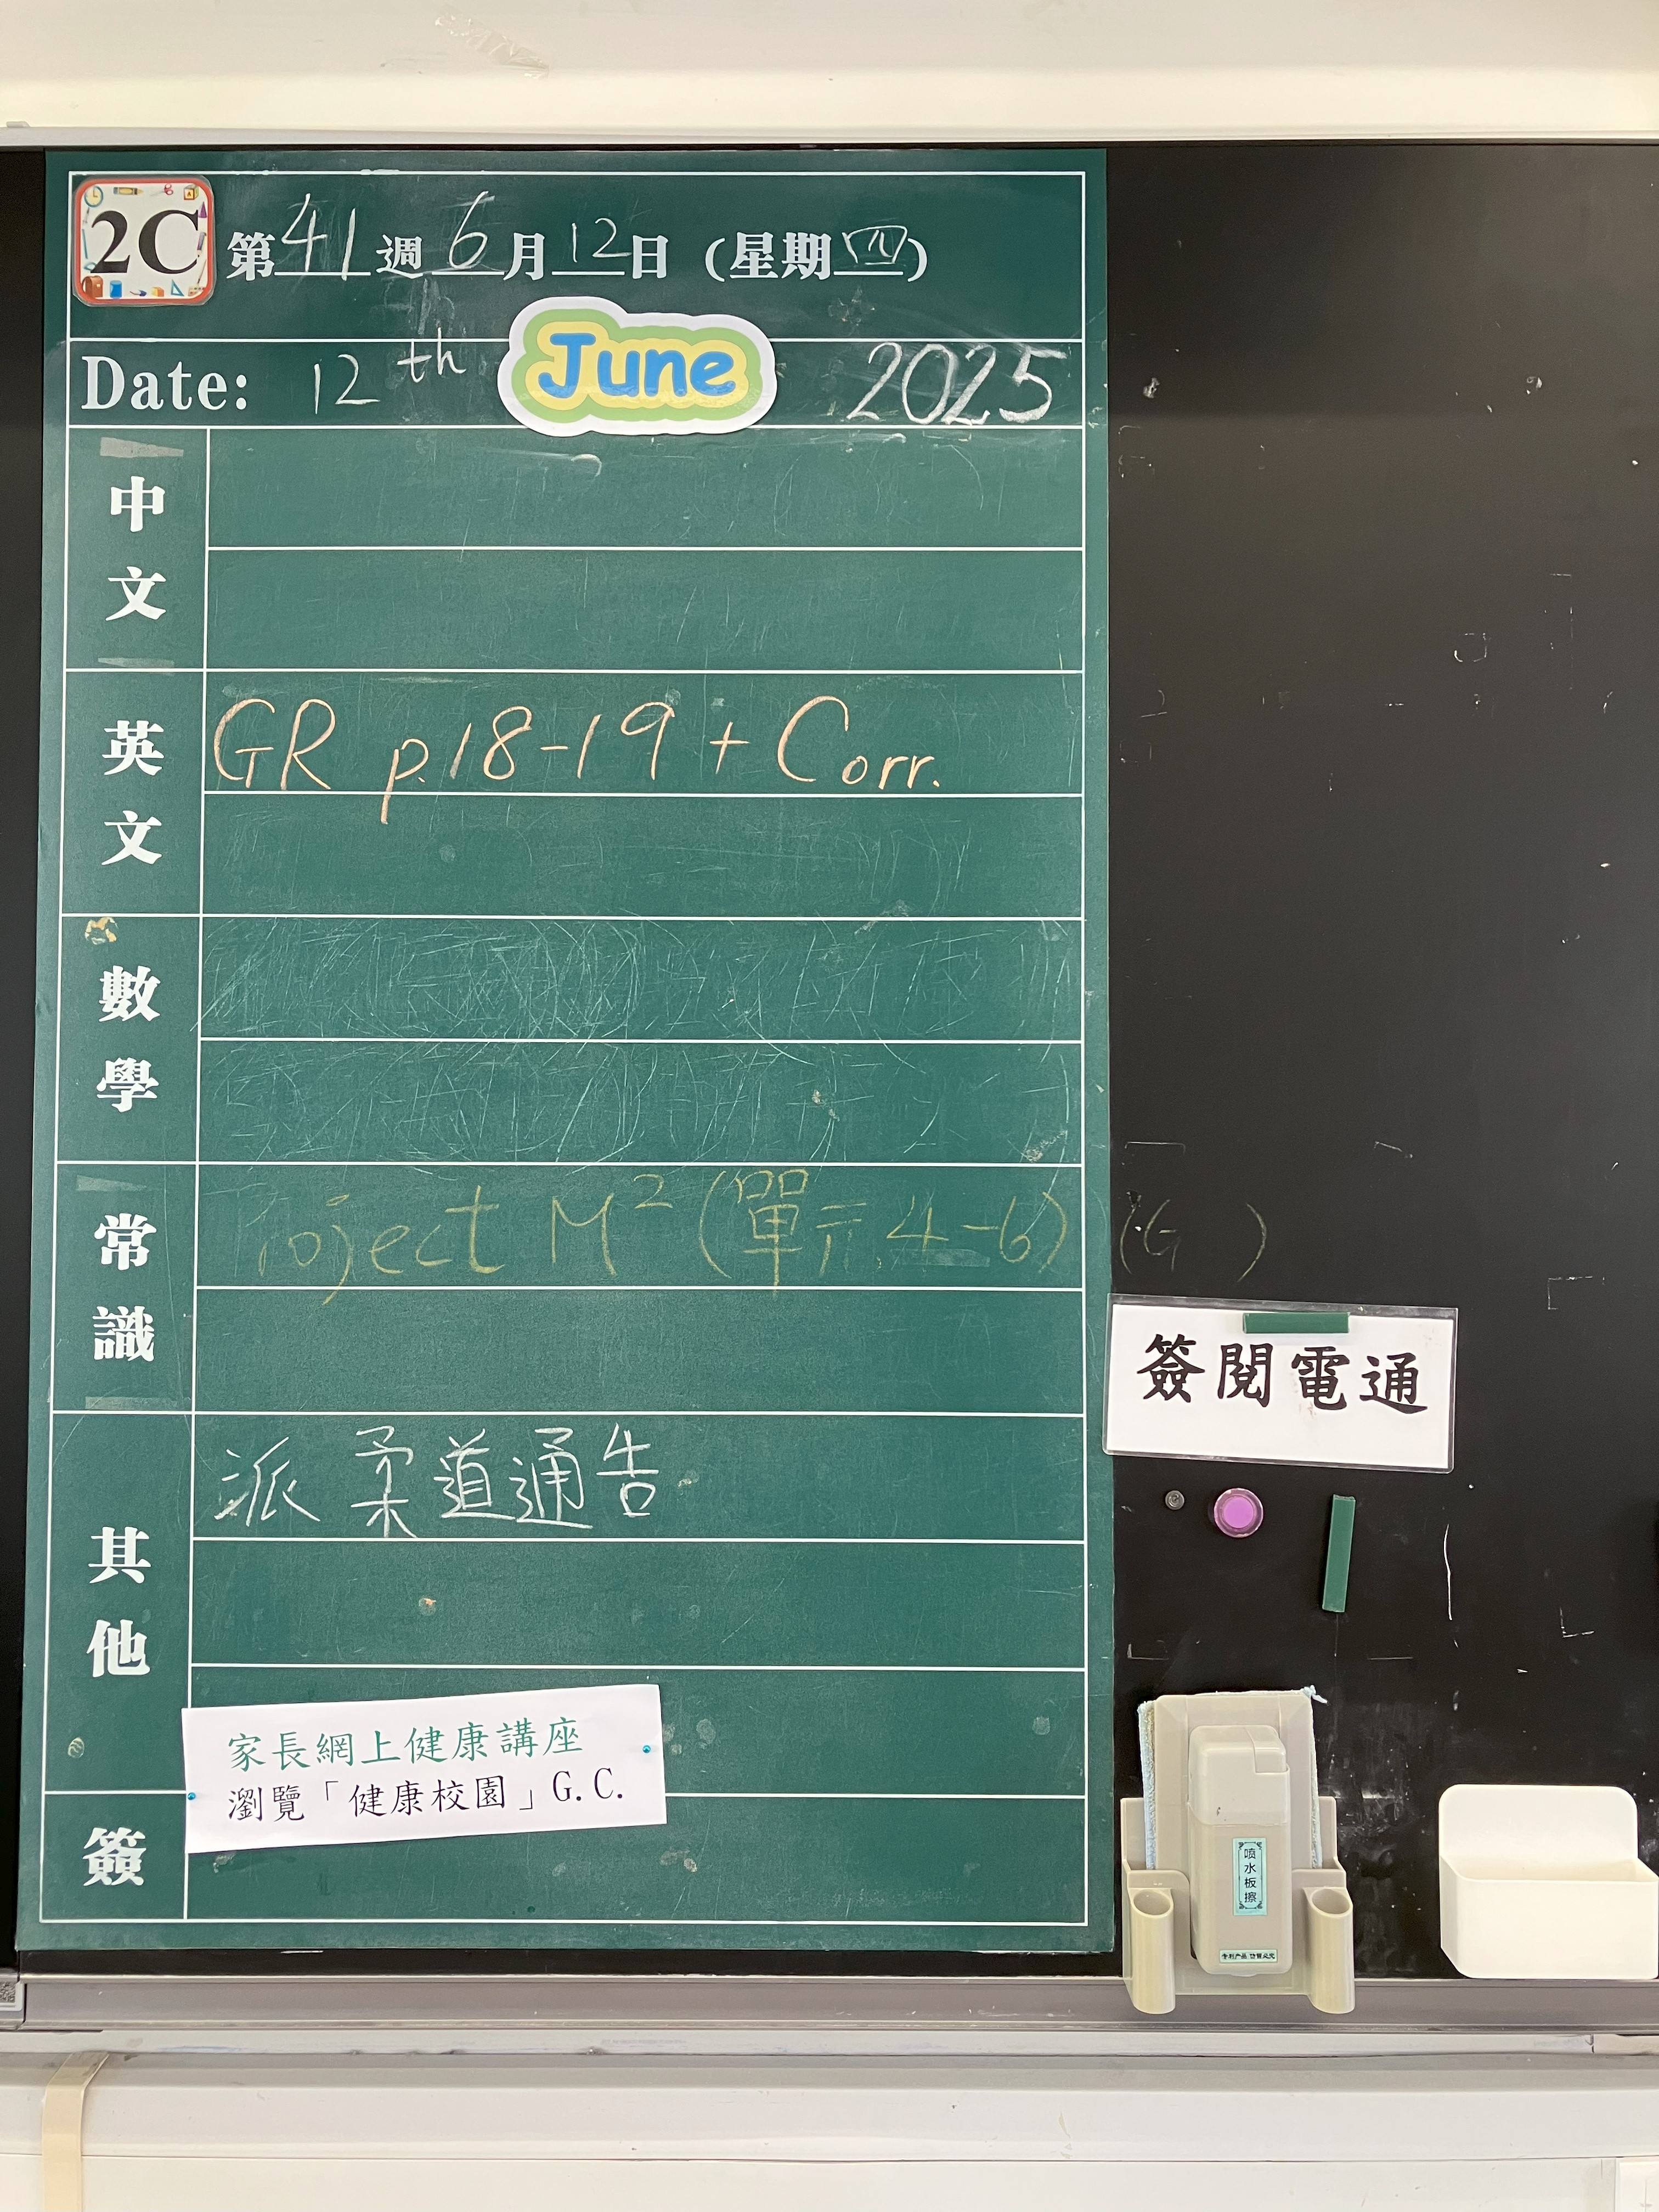 2C 第41週6月12日(星期四)
Date: 12th June 2025
中文
英文
GR p.18-19 + Corr.
數學
常識
oject M² (單元4-6)
簽閱電通
其他
派 柔道通告
家長網上健康講座
瀏覽「健康校園」G.C.
簽
喷水板擦